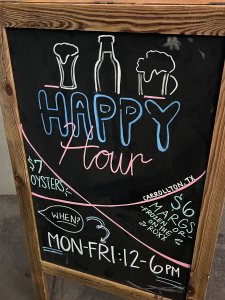 HAPPY
Hour
CARROLLTON, TX
$7
OYSTERS
$6
MARGS
FROZEN OR
ON THE
ROXX
WHEN?
MON-FRI: 12-6PM